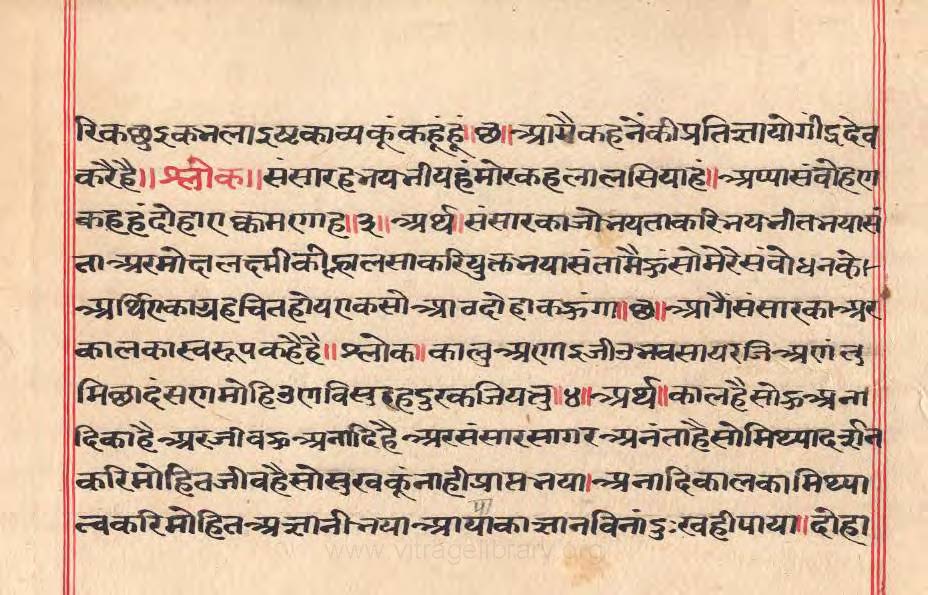 रिकछुइकनलाइष्टकाव्यकूंकहूंहूं॥छ॥आगैकहनेंकीप्रतिज्ञायोगींद्रदेव
करैहै॥श्लोक॥संसारहभयभीयहंमोरकहलालसियाहं॥अप्पासंवोहण
कहहंदोहाएक्कमणाह॥३॥अर्थ॥संसारकाजोभयताकरिभयभीतभयासं
ताअरमोक्षलक्ष्मीकीलालसाकरियुक्तभयासंतामैंऊंसोमेरेसंवोधनके
अर्थिएकाग्रहचितहोयएकसोआवदोहाकऊंगा॥छ॥आगैंसंसारकाअर
कालकास्वरूपकहैहै॥श्लोक॥कालुअणाइजीउभवसायरजिअणंतु
मिछादंसणमोहिउणविसुहदुरकजियतु॥४॥अर्थ॥कालहैसोऊअना
दिकाहैअरजीवऊअनादिहैअरसंसारसागरअनंताहैसोमिथ्यादर्शन
करिमोहितजीवहैसोसुखकूंनाहीप्राप्तभया।अनादिकालकामिथ्या
त्वकरिमोहितअज्ञानीभयाआपाकाज्ञानविनांदुःखहीपाया॥दोहा
www.vitragelibrary.org